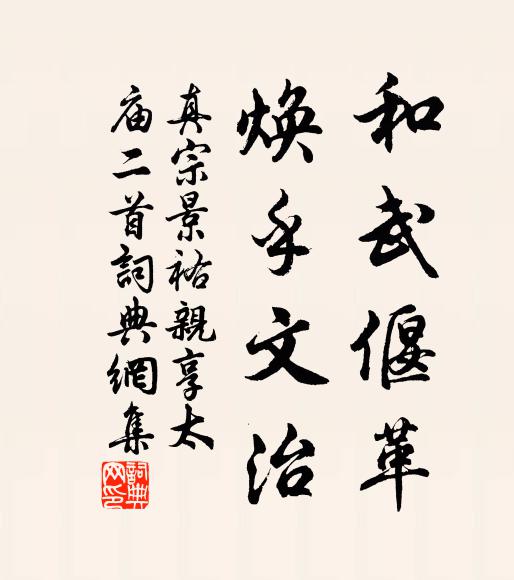 和武偃革
煥乎文治
真宗景祐親享太
庙二首詞典網集
詞典网印